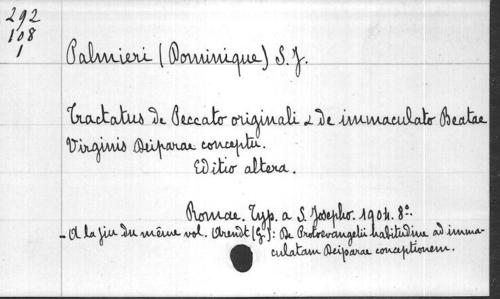 292
108
1
Palmieri (Dominique) S. J.
Tractatus de Peccato originali & de immaculato Beatae
Virginis Deiparae conceptu.
Editio altera.
Romae. Typ. a S. Josepho. 1904. 8º.
- A la fin du même vol. Arendt (G.): De Protoevangelii habitudine ad imma-
culatam Deiparae conceptionem.